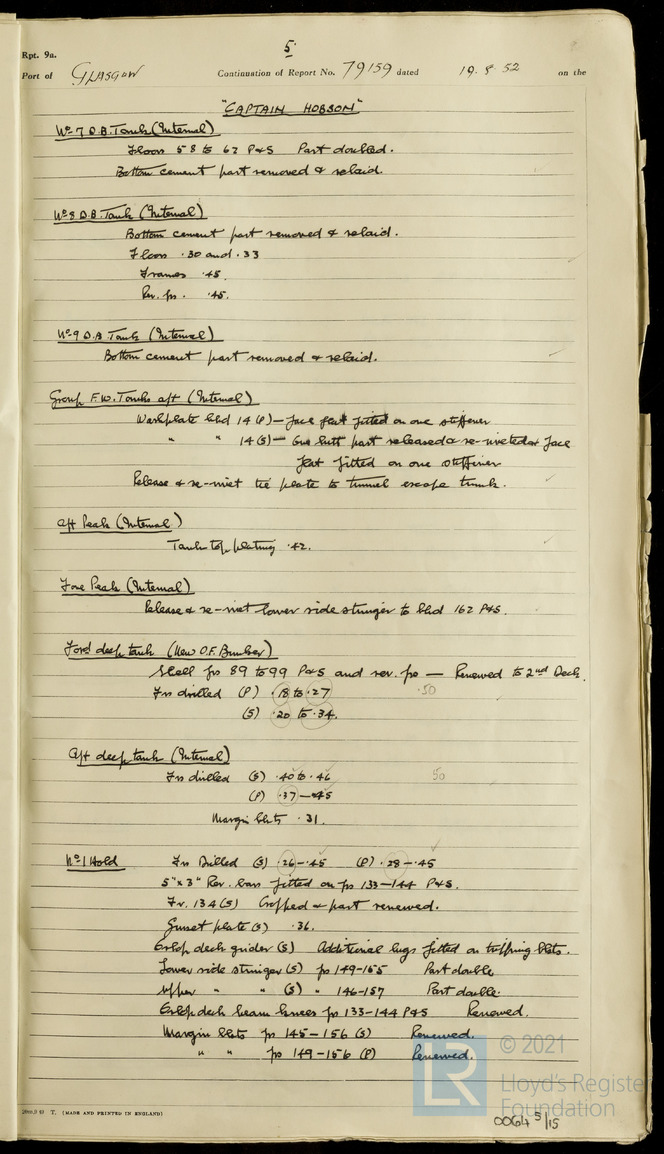 5
Rpt. 9a.
Port of GLASGOW Continuation of Report No. 79159 dated 19. 8. 52 on the
"CAPTAIN HOBSON"
No 7 D.B. Tank (Internal)
Floors 58 to 62 P&S Part doubled.
Bottom cement part removed & relaid.
No 8 D.B. Tank (Internal)
Bottom cement part removed & relaid.
Floors .30 and .33
Frames .45.
Rev. frs. .45.
No 9 D.B Tank (Internal)
Bottom cement part removed & relaid.
Group F.W. Tanks aft (Internal)
Washplate bhd 14 (P) — face flat fitted on one stiffener
" " 14 (S) — butt part released & re-riveted & face
flat fitted on one stiffener
Release & re-rivet tie plate to tunnel escape trunk.
Aft Peak (Internal)
Tank top plating .42.
Fore Peak (Internal)
Release & re-rivet lower side stringer to bhd 162 P&S.
Ford deep tank (New O.F. Bunker)
Shell frs 89 to 99 P&S and rev. frs — Renewed to 2nd Deck.
Frs drilled (P) .18 to .27 .50
(S) .20 to .34.
Aft deep tank (Internal)
Frs drilled (S) .40 to .46 50
(P) .37 — .45
Margin bkts .31.
No 1 Hold Frs Drilled (S) .26 — .45 (P) .28 — .45
5" x 3" Rev. bars fitted on frs 133 — 144 P&S.
Fr. 134 (S) Cropped & part renewed.
Gusset plate (S) .36.
Orlop deck girder (S) Additional lugs fitted on tripping bkts.
Lower side stringer (S) frs 149-155 Part double
Upper " " (S) " 146-157 Part double.
Orlop deck beam knees frs 133-144 P&S Renewed.
Margin bkts frs 145 — 156 (S) Renewed.
" " frs 149 — 156 (P) Renewed.
© 2021
LR Lloyd's Register
Foundation
T. (MADE AND PRINTED IN ENGLAND)
0064 5/15